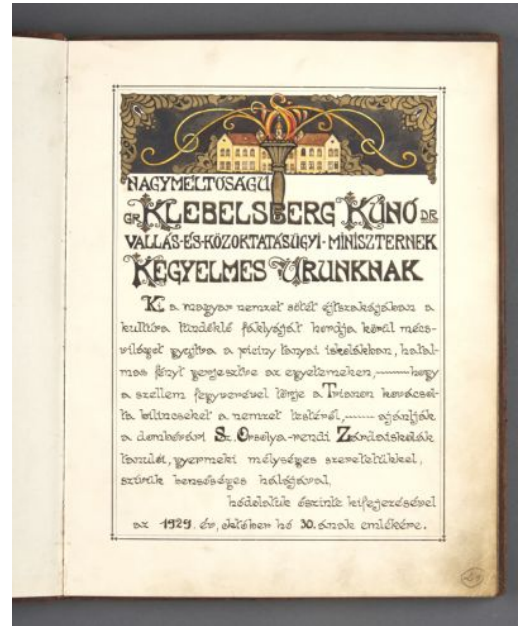 NAGYMÉLTÓSÁGÚ
GR KLEBELSBERG KUNÓ DR
VALLÁS-ÉS-KÖZOKTATÁSÜGYI-MINISZTERNEK
KEGYELMES URUNKNAK
Ki a magyar nemzet sötét éjtszakájában a
kultúra tündéklő fáklyáját hordja körül mécs-
világot gyujtva a piciny tanyai iskolákban, hatal-
mas fényt gerjesztve az egyetemeken, hogy
a szellem fegyverével törje a Trianon kovácsol-
ta bilincseket a nemzet testéről, ajánlják
a dombóvári Sz. Orsolya-rendi Zárdaiskolák
tanulói, gyermeki mélységes szeretetükkel,
szívük bensőséges hálájával,
hódolatuk őszinte kifejezésével
az 1929. év, október hó 30.ának emlékére.